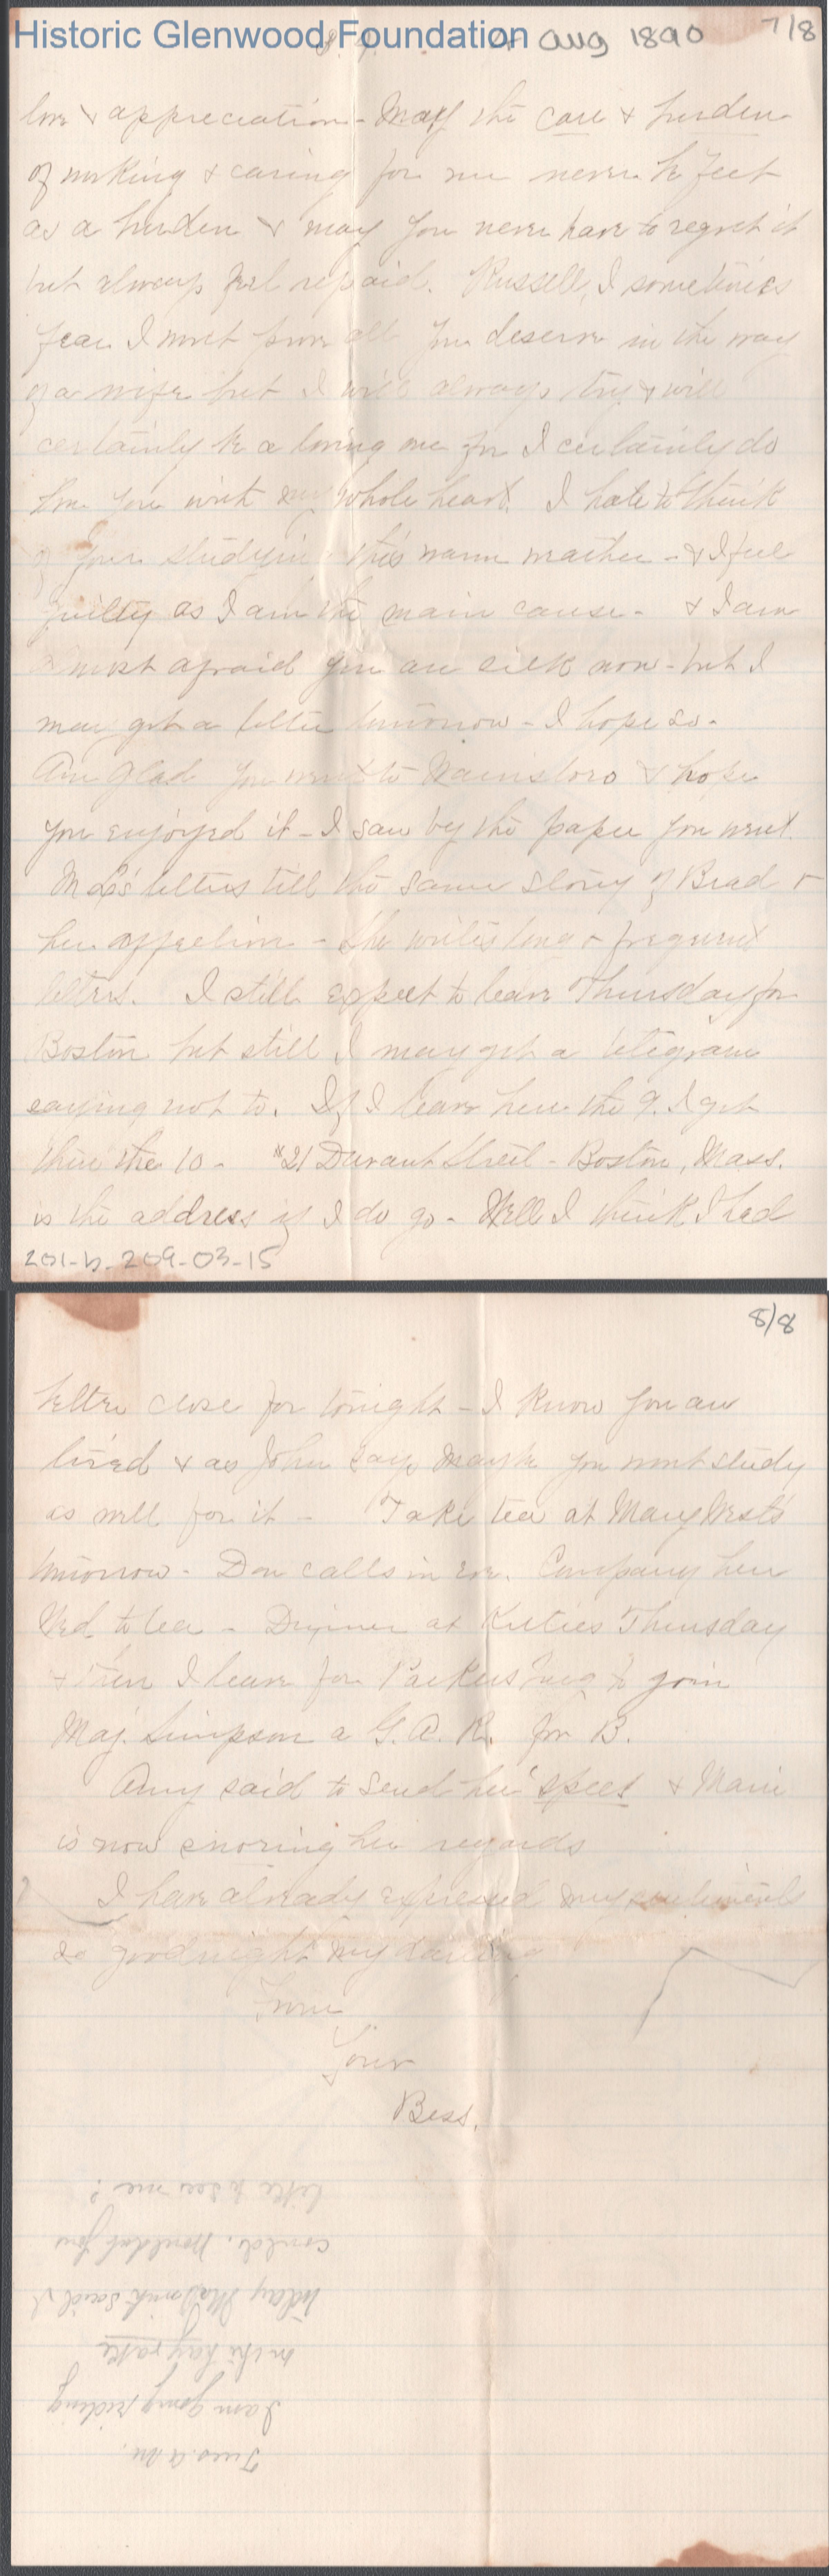 Historic Glenwood Foundation
Aug 1890
7/8
love & appreciation - May the care & burden
of working & caring for me never be felt
as a burden & may you never have to regret it
but always feel repaid. Russell, I sometimes
fear I wont prove all you deserve in the way
of a wife but I will always try & will
certainly be a loving one for I certainly do
love you with my whole heart. I hate to think
of your studying this warm weather - & I feel
guilty as I am the main cause - & I am
almost afraid you are sick now - but I
may get a letter tomorrow - I hope so.
Am glad you went to & hope
you enjoyed it - I saw by the paper you went.
letters tell the same story of Brad &
her affection - She writes long & frequent
letters. I still expect to leave Thursday for
Boston but still I may get a telegram
saying not to. If I leave here the 9. I get
there the 10 - #21 Durant Street - Boston, Mass.
is the address if I do go - Well I think I had
201-b-209-03-15
8/8
better close for tonight - I know you are
tired & as John says maybe you wont study
as well for it - Take tea at Mary West's
tomorrow - Don calls in eve. Company here
Wed. to tea - Dinner at Kittie's Thursday
& then I leave for Parkersburg to join
Maj. Simpson a G.A.R. for B.
Amy said to send her spect & Mam
is now snoring her regards
I have already expressed my sentiments
so goodnight my darling
From
Your
Bess.
Tues. a.m.
I am going riding
in the hay rake
today said I
could. Wouldnt you
like to see me?